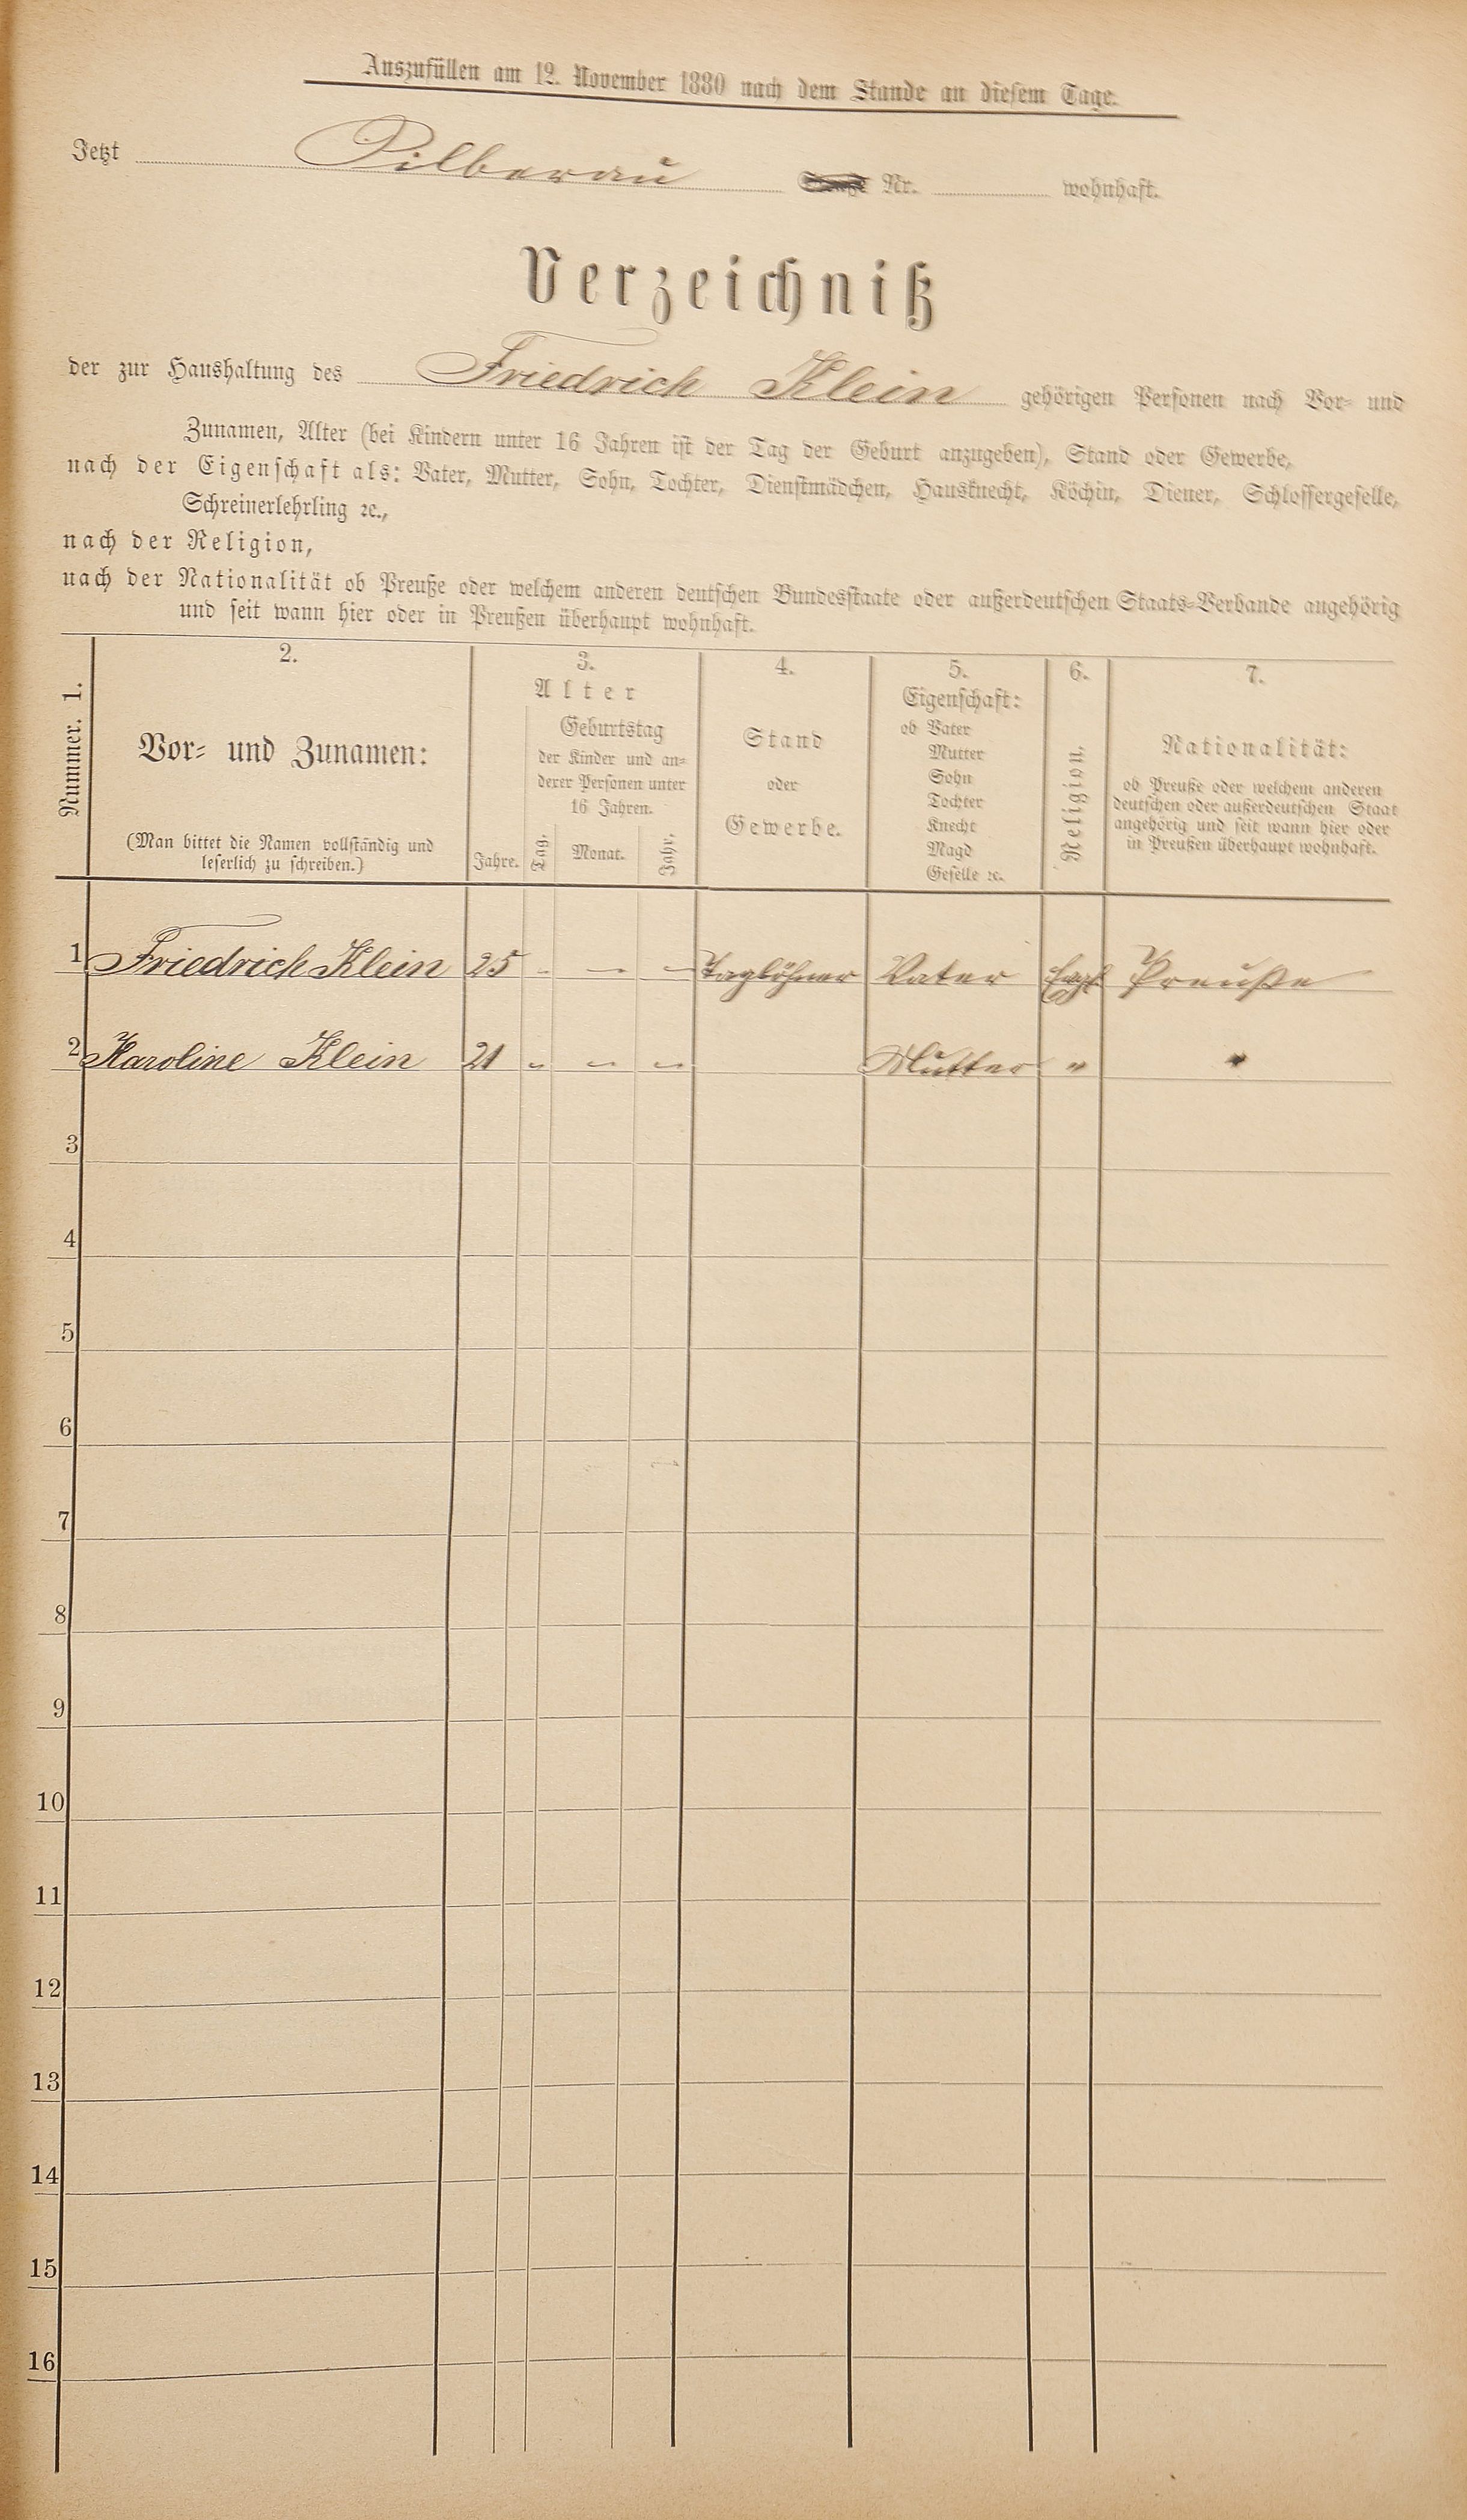 Auszufüllen am 12. November 1880 nach dem Stande an diesem Tage.
Jetzt Silberau Nr. wohnhaft.
Verzeichniß
der zur Haushaltung des Friedrich Klein gehörigen Personen nach Vor- und
Zunamen, Alter (bei Kindern unter 16 Jahren ist der Tag der Geburt anzugeben), Stand oder Gewerbe,
nach der Eigenschaft als: Vater, Mutter, Sohn, Tochter, Dienstmädchen, Hausknecht, Köchin, Diener, Schlossergeselle,
Schreinerlehrling ꝛc.,
nach der Religion,
nach der Nationalität ob Preuße oder welchem anderen deutschen Bundesstaate oder außerdeutschen Staats-Verbande angehörig
und seit wann hier oder in Preußen überhaupt wohnhaft.
Nummer. 1.
2.
Vor- und Zunamen:
(Man bittet die Namen vollständig und
leserlich zu schreiben.)
3.
Alter
Jahre.
Geburtstag
der Kinder und an-
derer Personen unter
16 Jahren.
Tag. Monat. Jahr.
4.
Stand
oder
Gewerbe.
5.
Eigenschaft:
ob Vater
Mutter
Sohn
Tochter
Knecht
Magd
Geselle ꝛc.
6.
Religion.
7.
Nationalität:
ob Preuße oder welchem anderen
deutschen oder außerdeutschen Staat
angehörig und seit wann hier oder
in Preußen überhaupt wohnhaft.
1 Friedrich Klein 25 - - - Taglöhner Vater Evgl Preuße
2 Karoline Klein 21 - - - Mutter " "
3
4
5
6
7
8
9
10
11
12
13
14
15
16